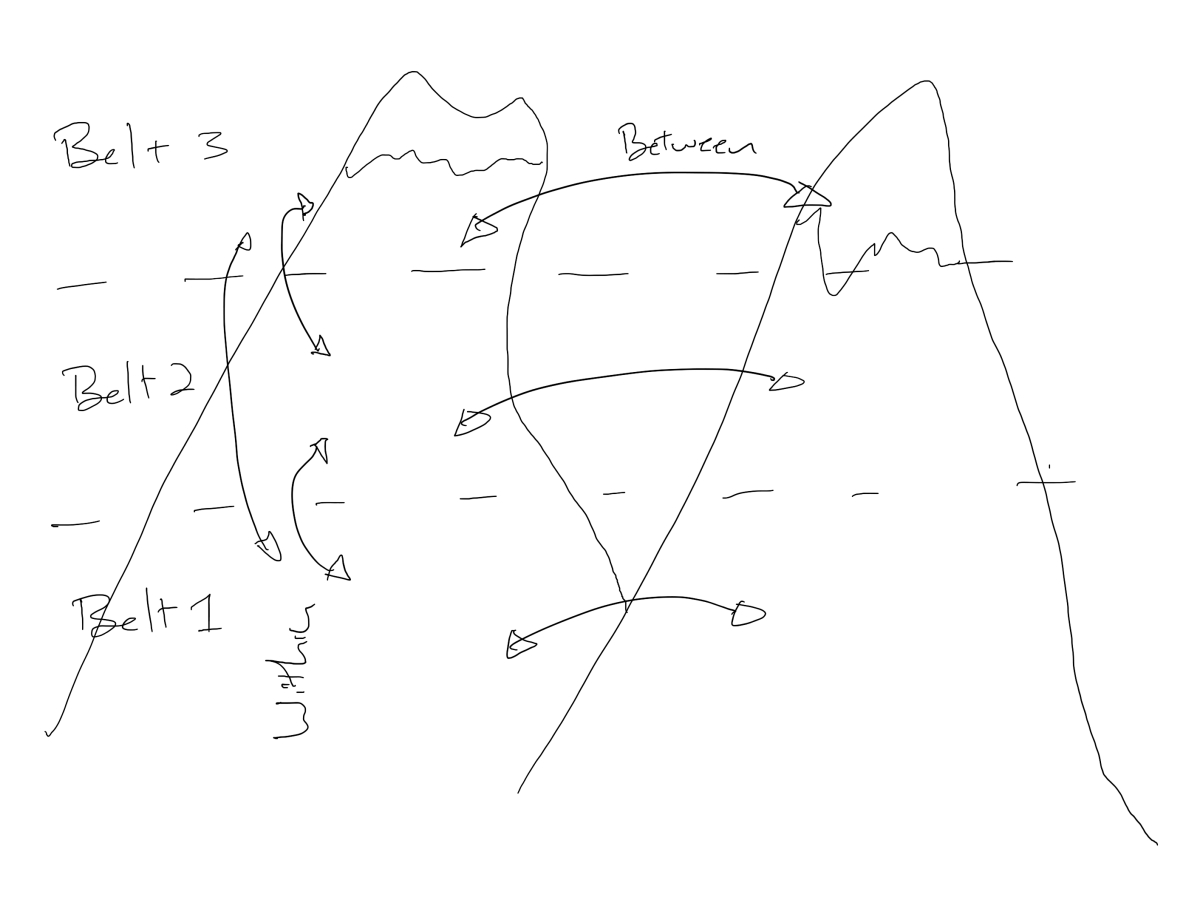 Belt 3
Between
Belt 2
Belt 1
Within